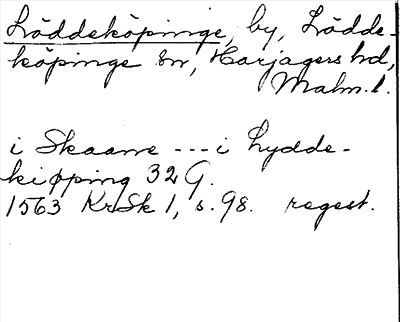 Löddeköpinge, by, Lödde-
köpinge sn, Harjagers hd,
Malm. l.
i Skaane --- i Lydde-
kiøping 32 G.
1563 KrSk 1, s. 98. regest.